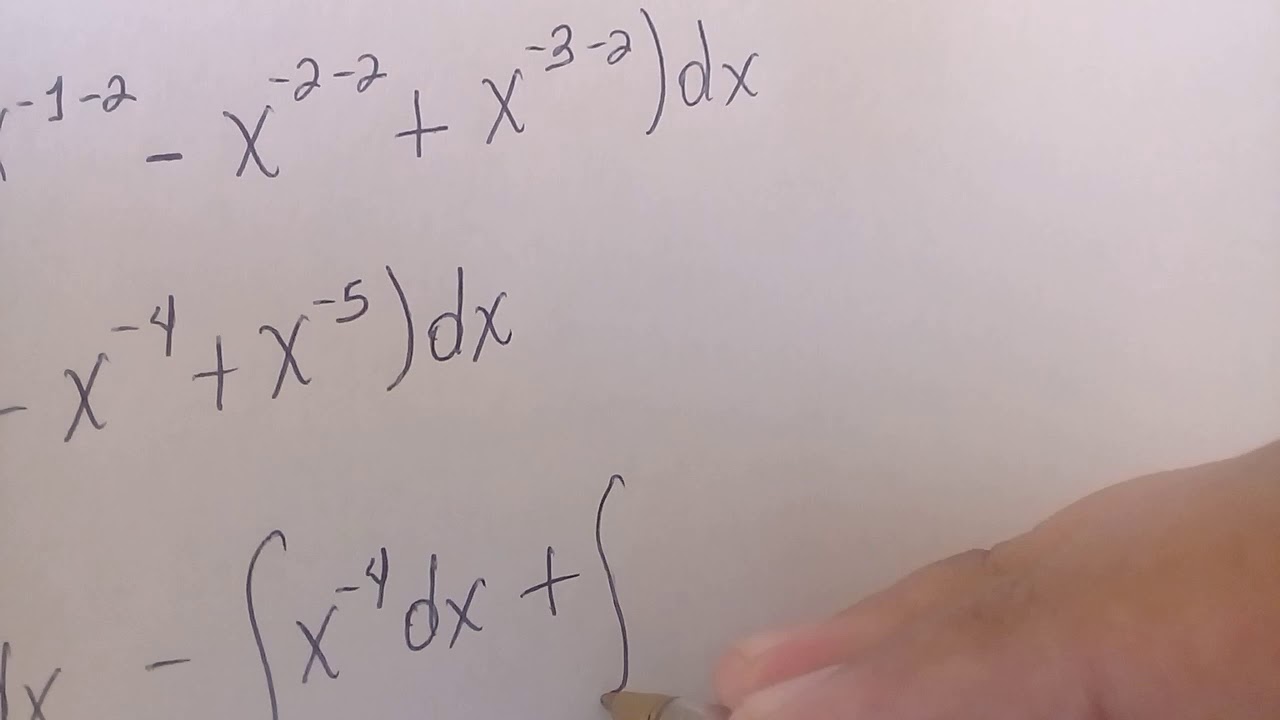 x^{-1-2} - x^{-2-2} + x^{-3-2}) dx
- x^{-4} + x^{-5}) dx
dx - ∫ x^{-4} dx + ∫